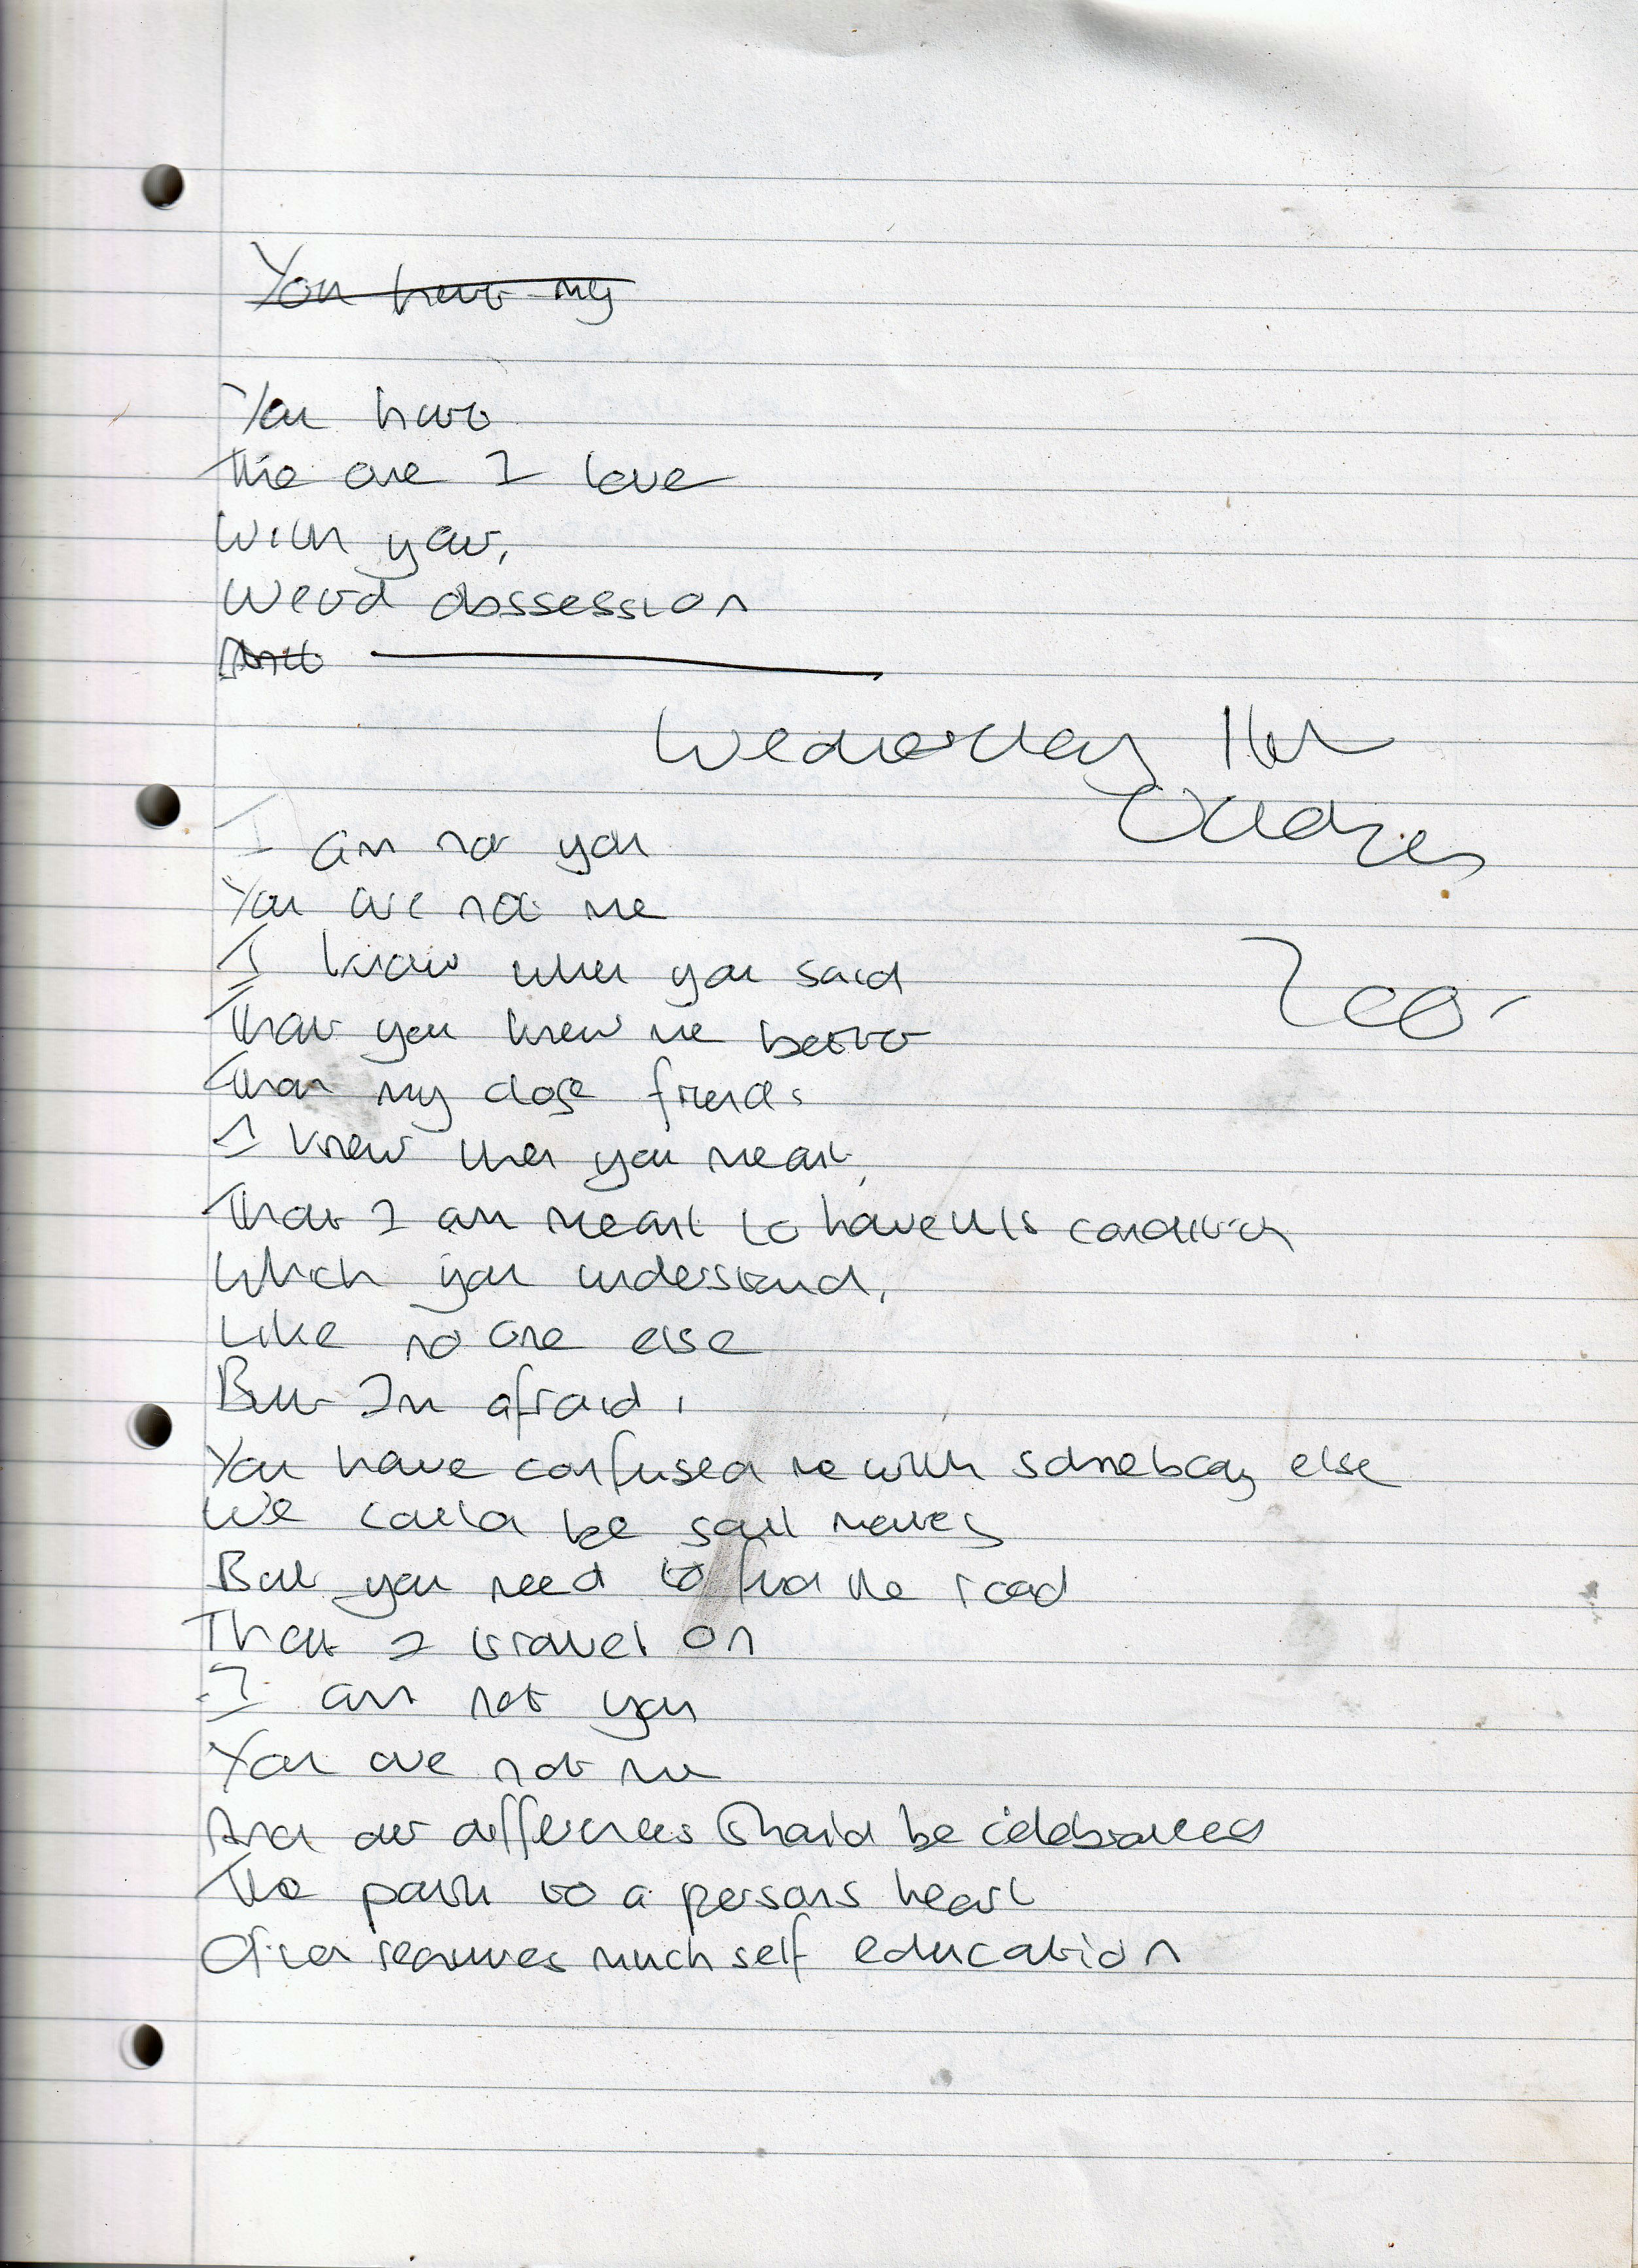 You have my
You have
The one I love
With your,
Weird obssession
Wednesday 11th
October
I am not you
You are not me
I know when you said
That you knew me better
Than my close friends
I knew that you meant,
That I am meant to have this condition
Which you understand,
Like no one else
But Im afraid,
You have confused me with somebody else
We could be soul mates
But you need to find the road
That I travel on
I am not you
You are not me
And our differences should be celebrated
The path to a persons heart
Often requires much self education